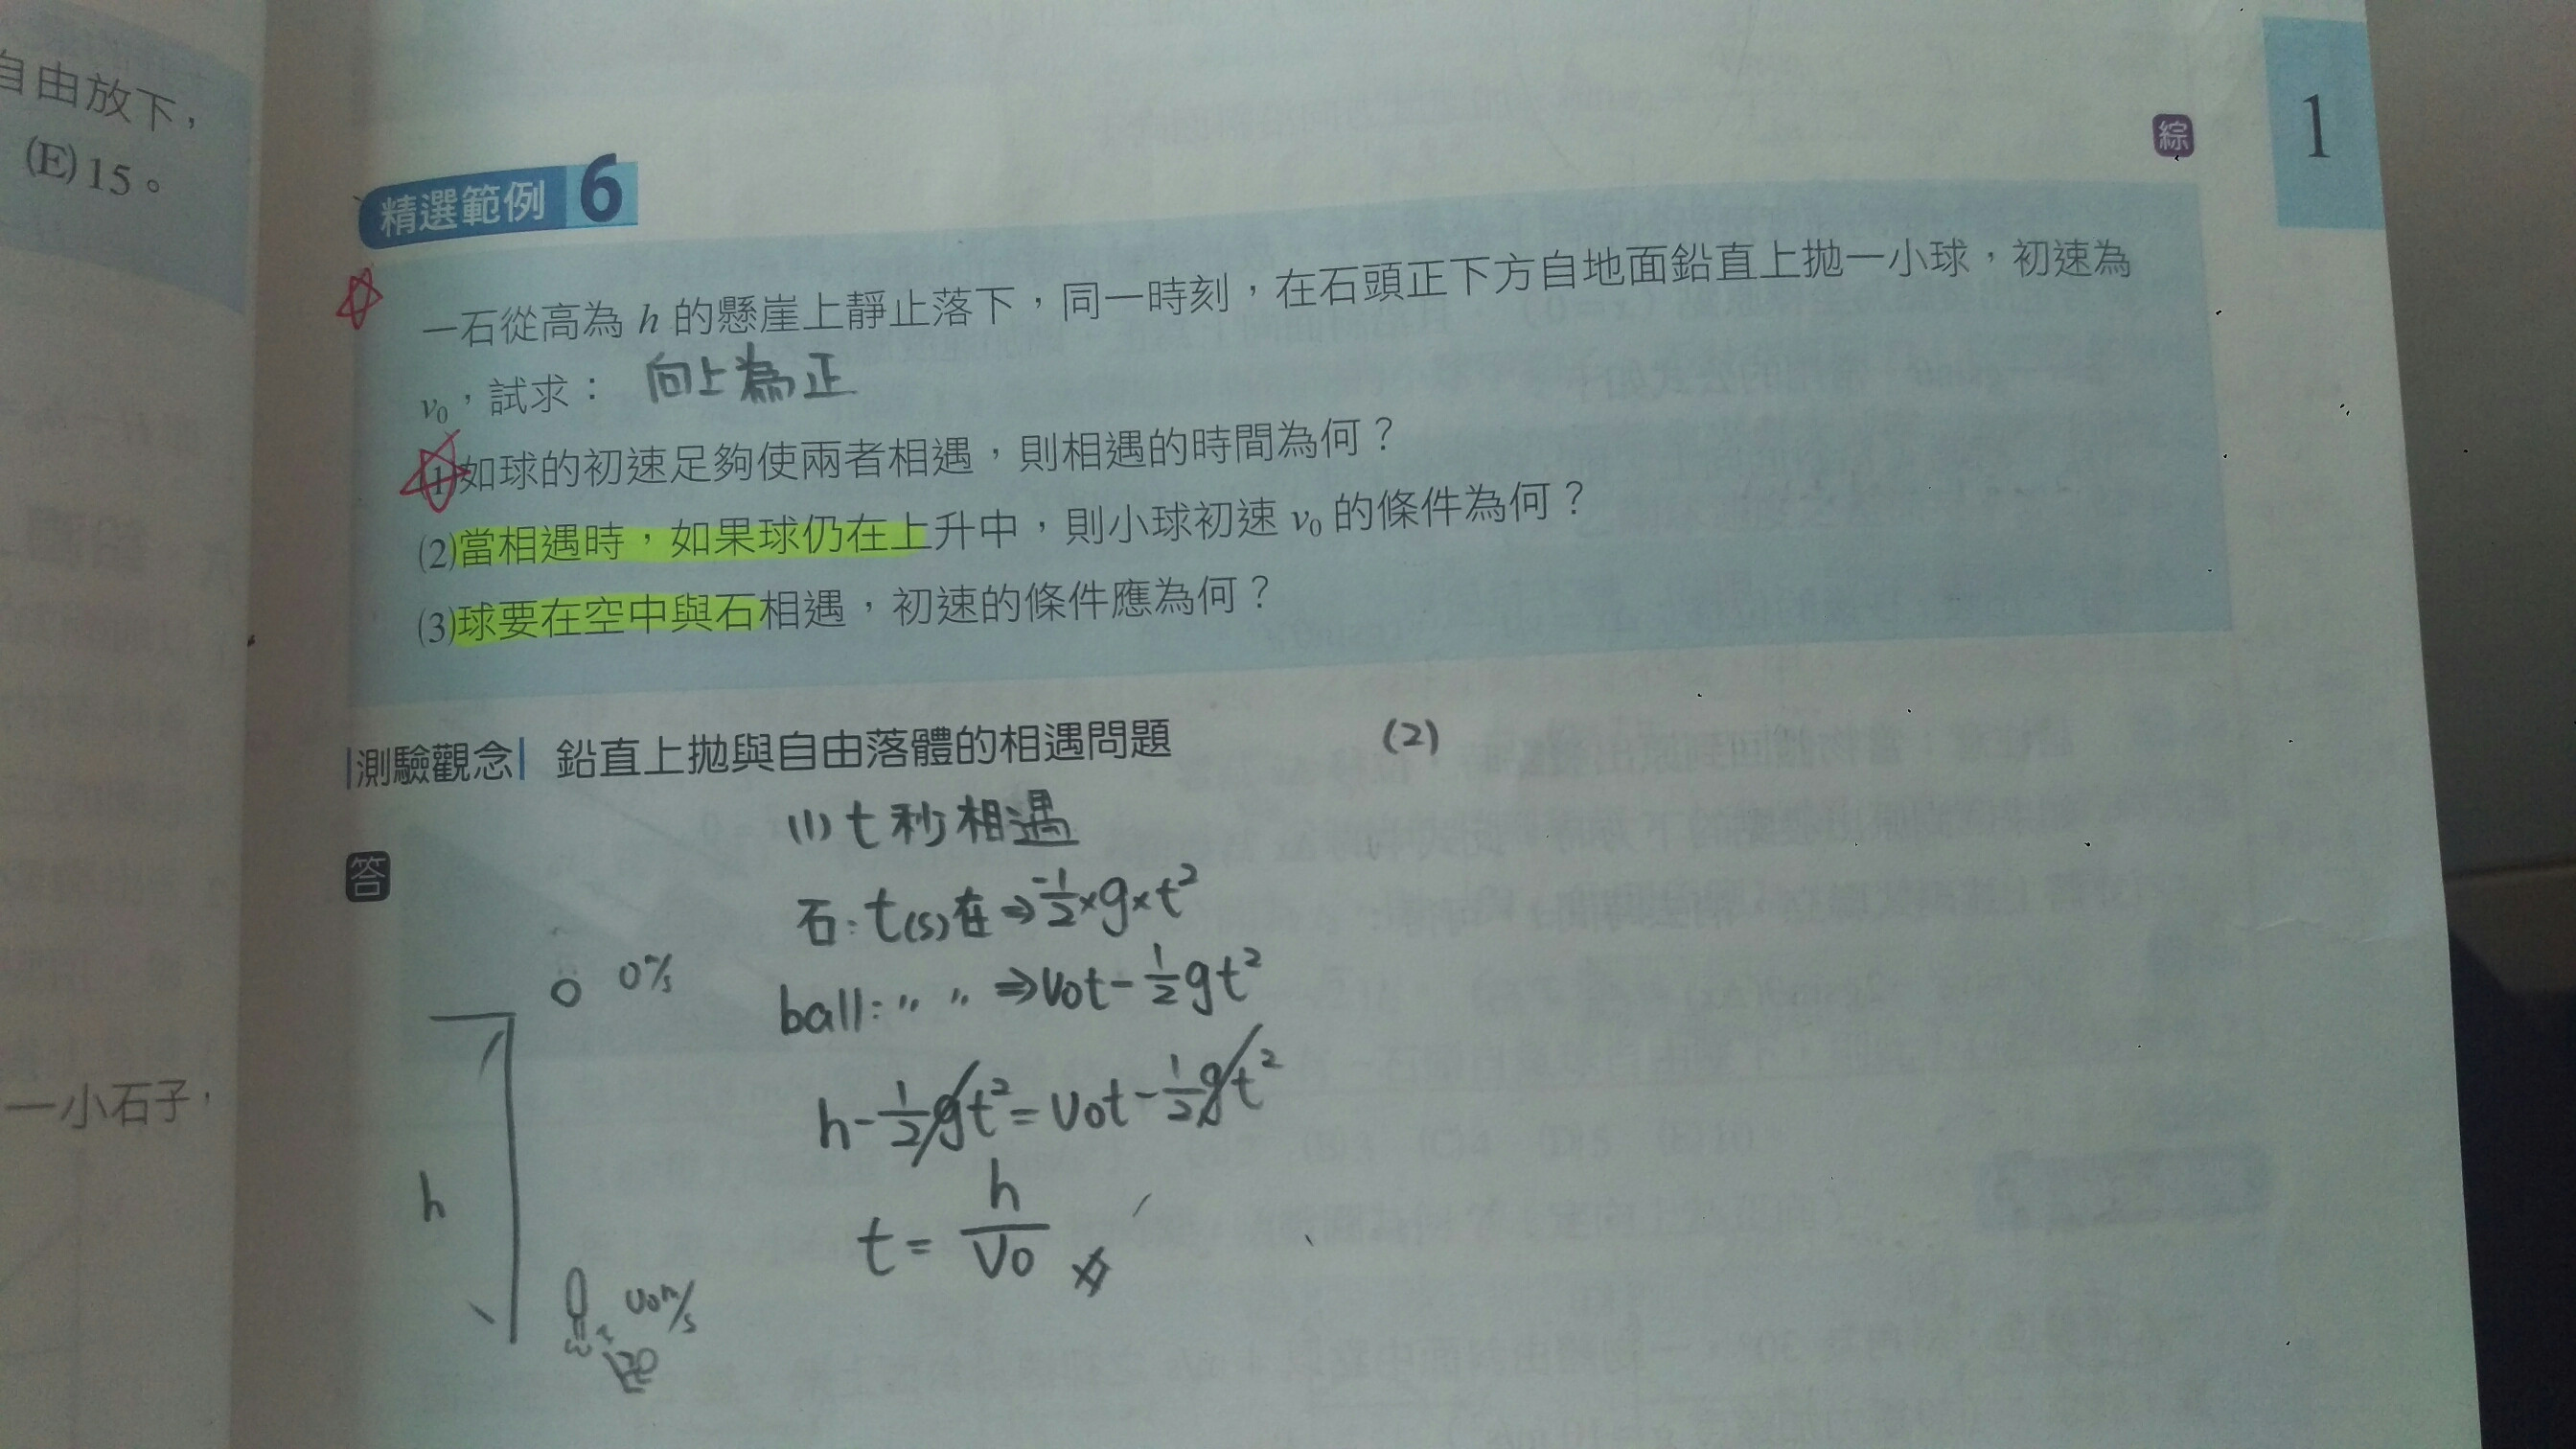 自由放下，
(E)15。
一小石子，
1
綜
精選範例 6
一石從高為 h 的懸崖上靜止落下，同一時刻，在石頭正下方自地面鉛直上拋一小球，初速為
v₀，試求： 向上為正
(1)如球的初速足夠使兩者相遇，則相遇的時間為何？
(2)當相遇時，如果球仍在上升中，則小球初速 v₀ 的條件為何？
(3)球要在空中與石相遇，初速的條件應為何？
|測驗觀念| 鉛直上拋與自由落體的相遇問題
答
0 m/s
h
v₀ m/s
(1) t 秒相遇
石：t(s)在⇒-1/2×g×t²
ball：〃 〃 ⇒v₀t-1/2gt²
h-1/2gt²=v₀t-1/2gt²
t=h/v₀
(2)